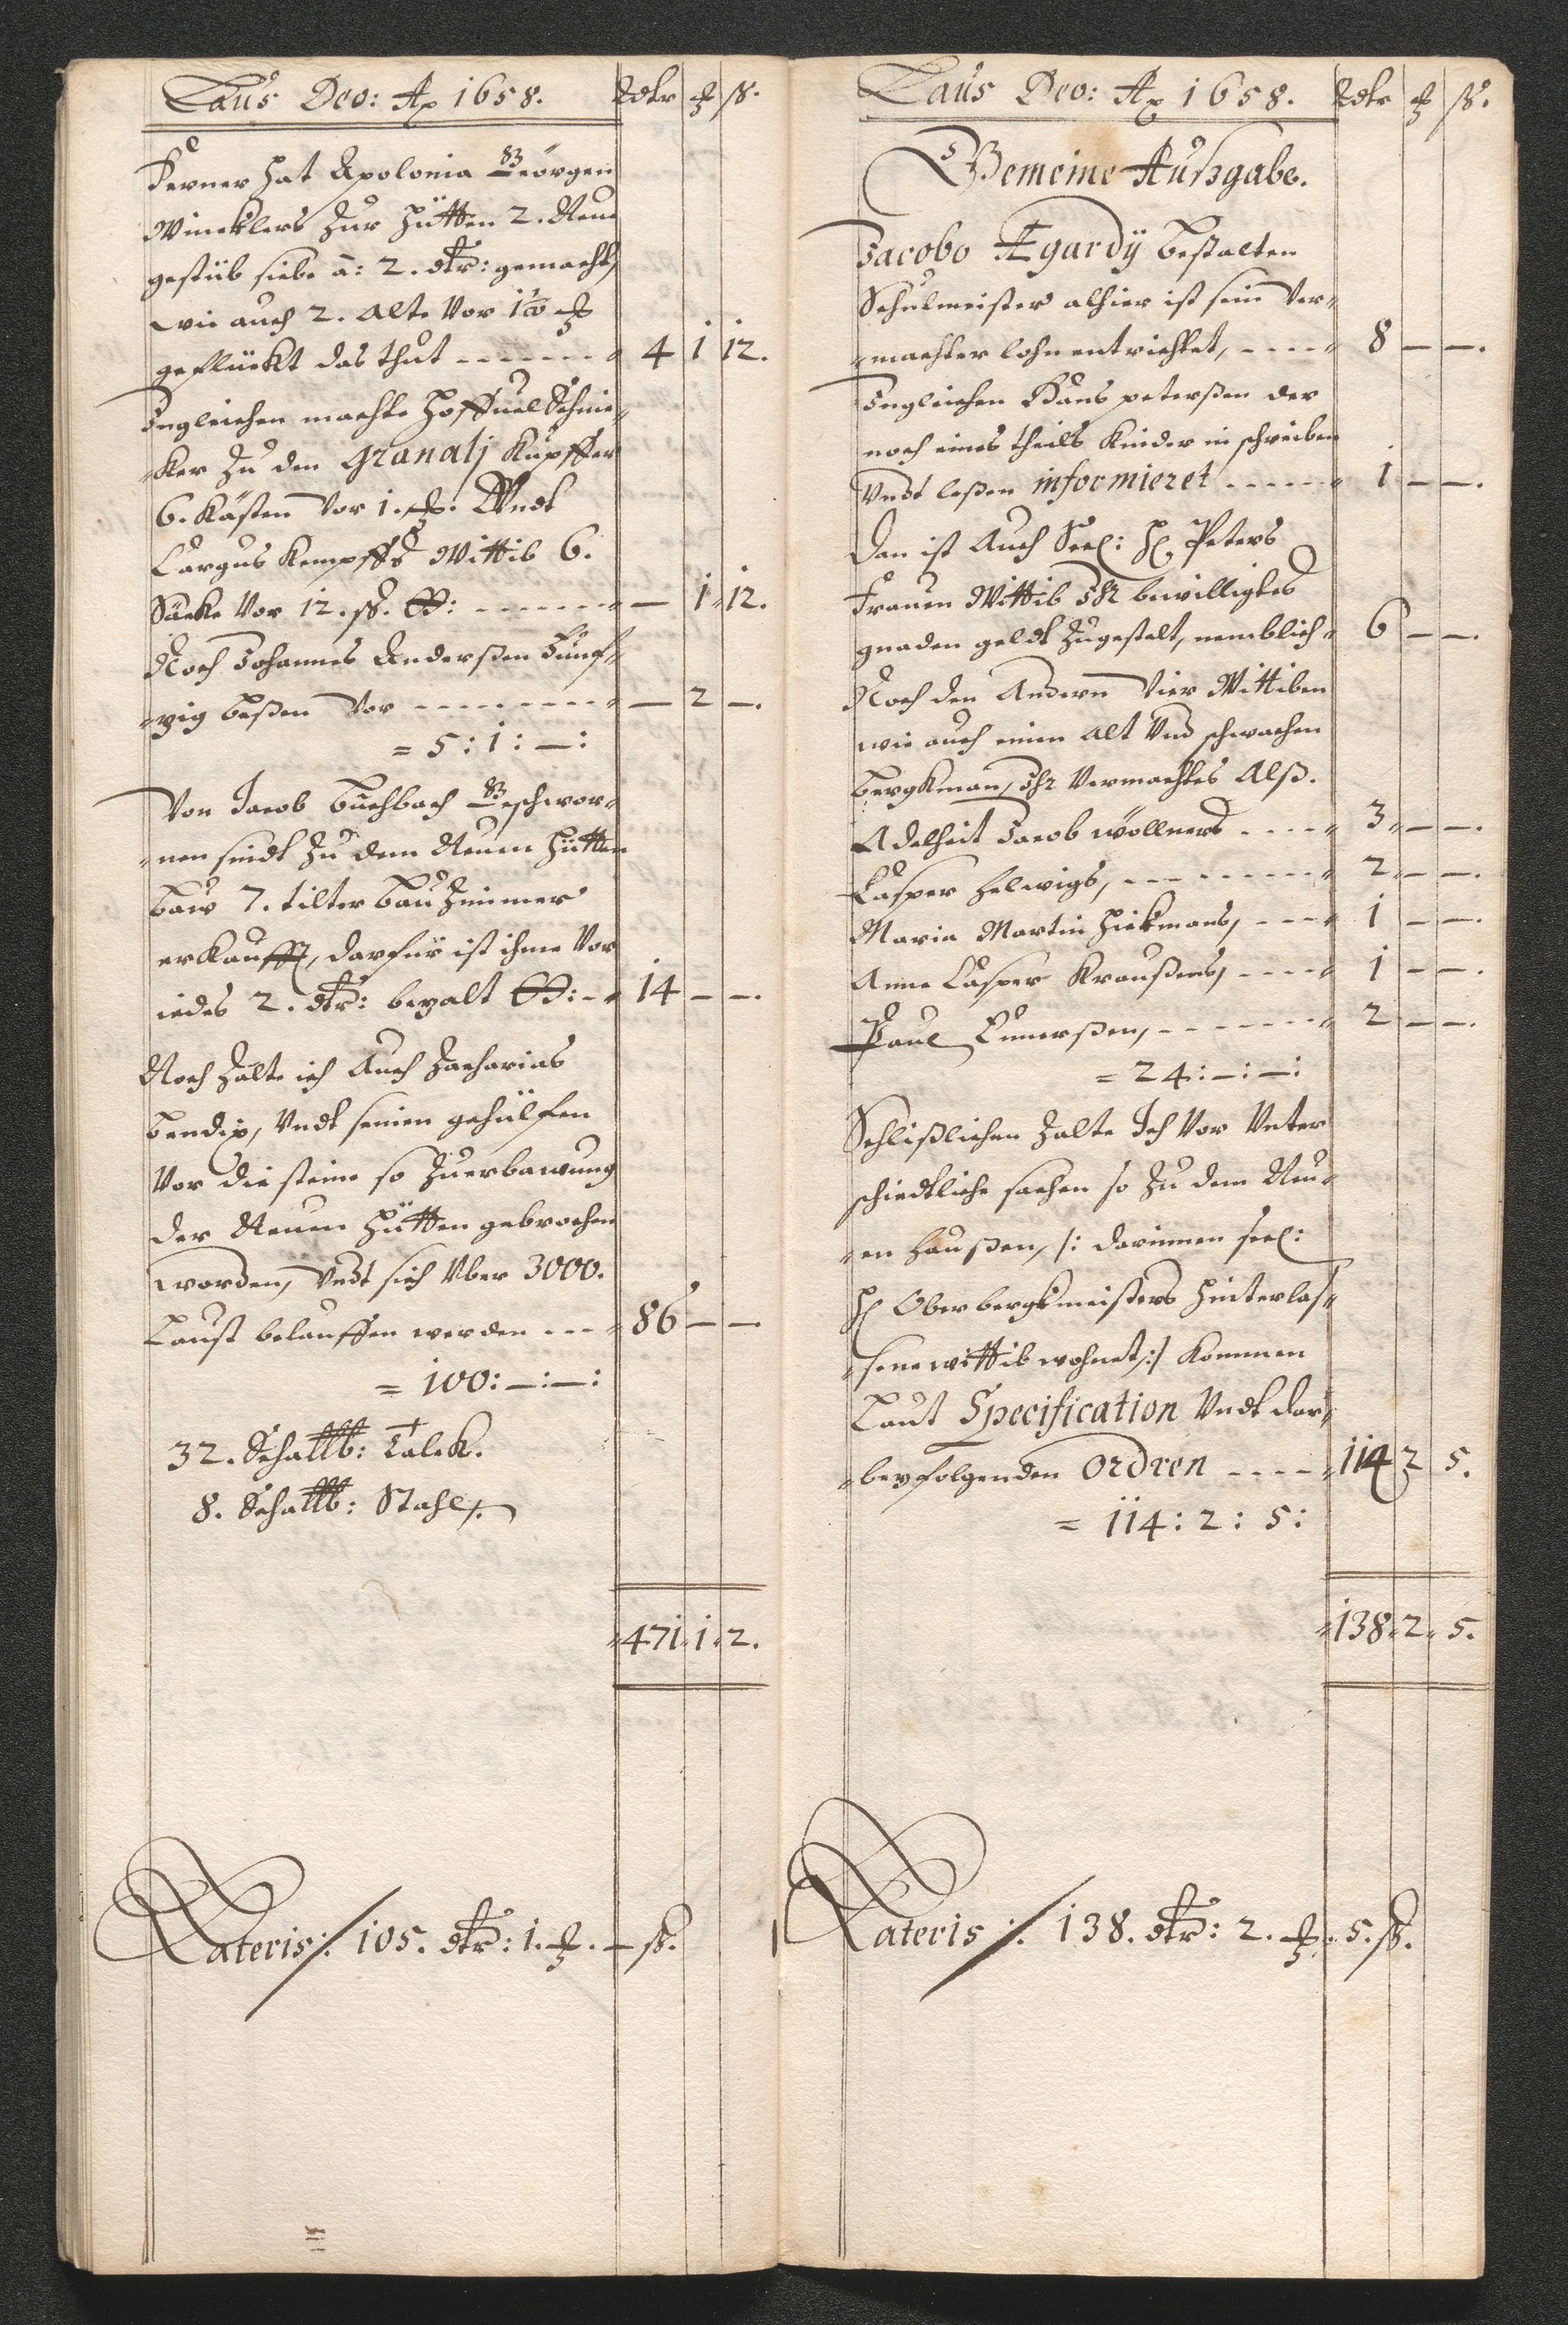 Laus Deo: Ao 1658. Rdtr ℔ ß.
Ferner hat Apolonia Geörgen
Wincklers zur Hütten 2. Neue
gestüb siebe à: 2. dtr: gemacht,
wie auch 2. alte vor 1½ ℔
geflückt das thut ------- 4 1 12.
Ingleichen machte Hoffuel Schnie-
-ker zu den Granalj Kupffer
6. Kästen vor 1. ℔. Undt
Largus Kempffs Wittib 6.
Säcke vor 12. ß. ------- — 1 12.
Noch Johannes Anderßen Fünf-
-zig beßen vor --------- — 2 —.
= 5 : 1 : — :
Von Jacob Buchbach Geschwor-
-nen sindt zu dem Neuen Hütten
baw 7. tilter bau Zimmer
erkaufft, darfür ist ihme vor
iedes 2. dtr: bezalt 14 — —.
Noch zalte ich auch Zacharias
Bendix, undt seinen gehülfen
vor die steine so zuerbawung
der Neuen Hütten gebrochen
worden, undt sich uber 3000.
Laust belauffen werden --- 86 — —.
= 100: — : — :
32. Schallb: Talck.
8. Schallb: Stahl.
471. 1. 2.
Lateris:/ 105. dtr: 1. ℔. — ß.
Laus Deo: Ao 1658. Rdtr ℔ ß.
Gemeine Außgabe.
Jacobo Ægardÿ bestalten
Schulmeister alhier ist sein ver-
-machter lohn entrichtet, ---- 8 — —.
Ingleichen Hans peterßen der
noch eines theils Kinder in schreiben
undt leßen informieret ----- 1 — —.
Dan ist auch Seel: H. Peters
Frauen Wittib ihr bewilligtes
gnaden geldt zugestelt, nemblich 6 — —.
Noch den andern vier Wittiben
wie auch einen alt und schwachen
bergkman, ihr vermachtes alß.
Adelheit Jacob wöllners ---- 3 — —.
Casper Helwigs, --------- 2 — —.
Maria Martin Hickmans, --- 1 — —.
Anne Casper Kraußens, ---- 1 — —.
Paul Ennerßen, ------- 2 — —.
= 24: — : — :
Schlißlichen zalte Ich vor unter
schiedtliche sachen so zu dem Neu-
-en Haußen, /: darinnen seel:
H. Oberbergkmeisters hinterlaß-
-sene wittib wohnet,:/ kommen
Laut Specification undt dar-
-bey folgenden Ordren ---- 114 2 5.
= 114 : 2 : 5 :
138. 2. 5.
Lateris:/. 138. dtr: 2. ℔. 5. ß.